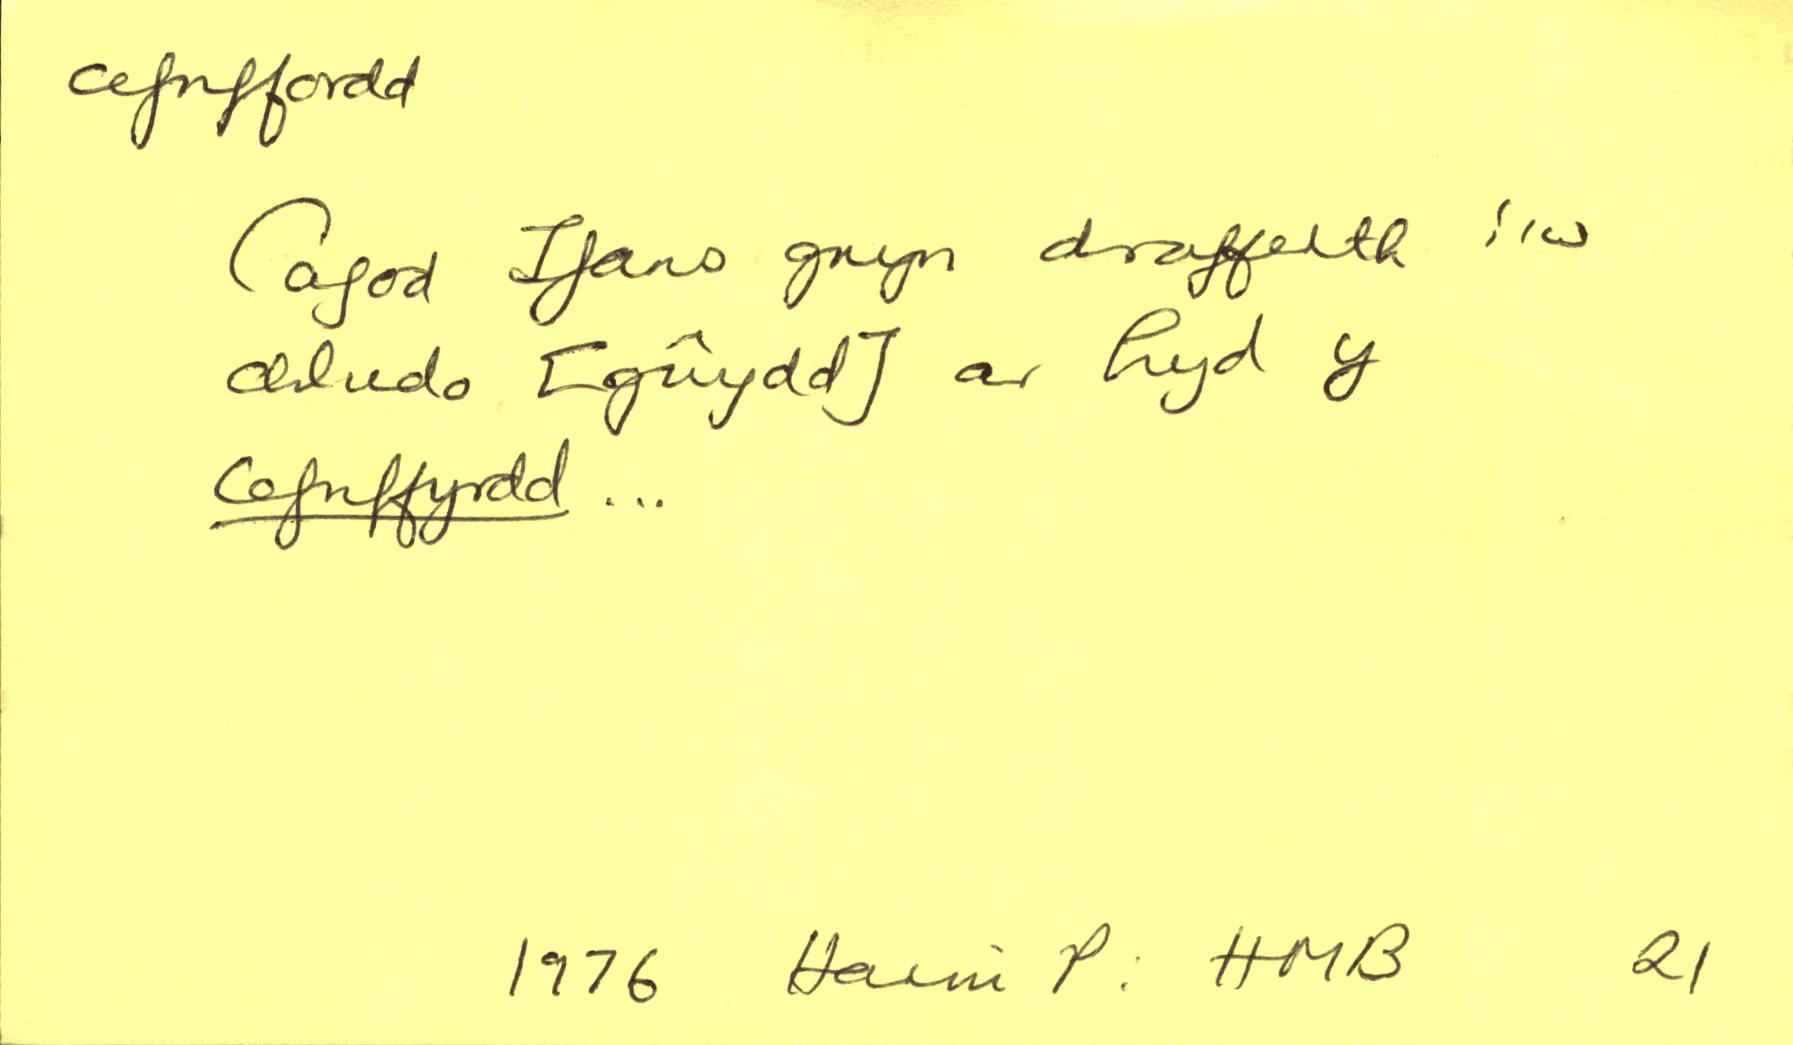 cefnffordd
Cafod Ifans gryn drafferth i'w
chludo [gŵydd] ar hyd y
cefnffyrdd ...
1976 Harri P: HMB 21